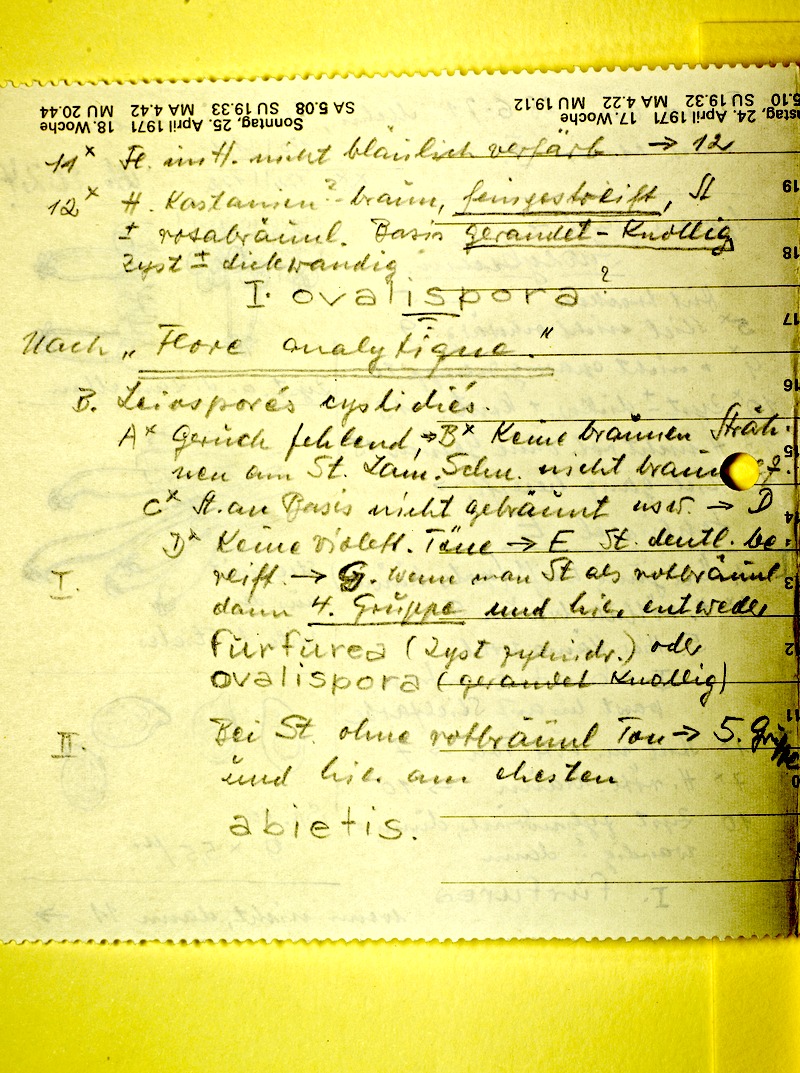 Sonntag, 25. April 1971 18. Woche
SA 5.08 SU 19.33 MA 4.42 MU 20.44
24. April 1971 17. Woche
5.10 SU 19.32 MA 4.22 MU 19.12
11x Fl. im H. nicht bläulich verfärb. → 12
12x H. Kastanien?-braun, feingestreift, St
± rosabräunl. Basis gerandet-Knollig
Zyst ± dickwandig
I. ovalispora ?
Nach „Flore analytique."
B. Leiosporés cystidiés.
Ax Geruch fehlend, → Bx Keine braunen Sträh-
nen am St. Lam. Schn. nicht braun
Cx St. an Basis nicht gebräunt usw. → D
Dx Keine violett. Töne → E St. deutl. be-
I. reift. → G. wenn man St als rotbräunl
dann 4. Gruppe und hie. entweder
furfurea (Zyst zylindr.) oder
ovalispora (gerandet Knollig)
II. Bei St. ohne rotbräunl Ton → 5. Gruppe
und hie. am ehesten
abietis.
19
18
17
16
15
14
3
2
11
0